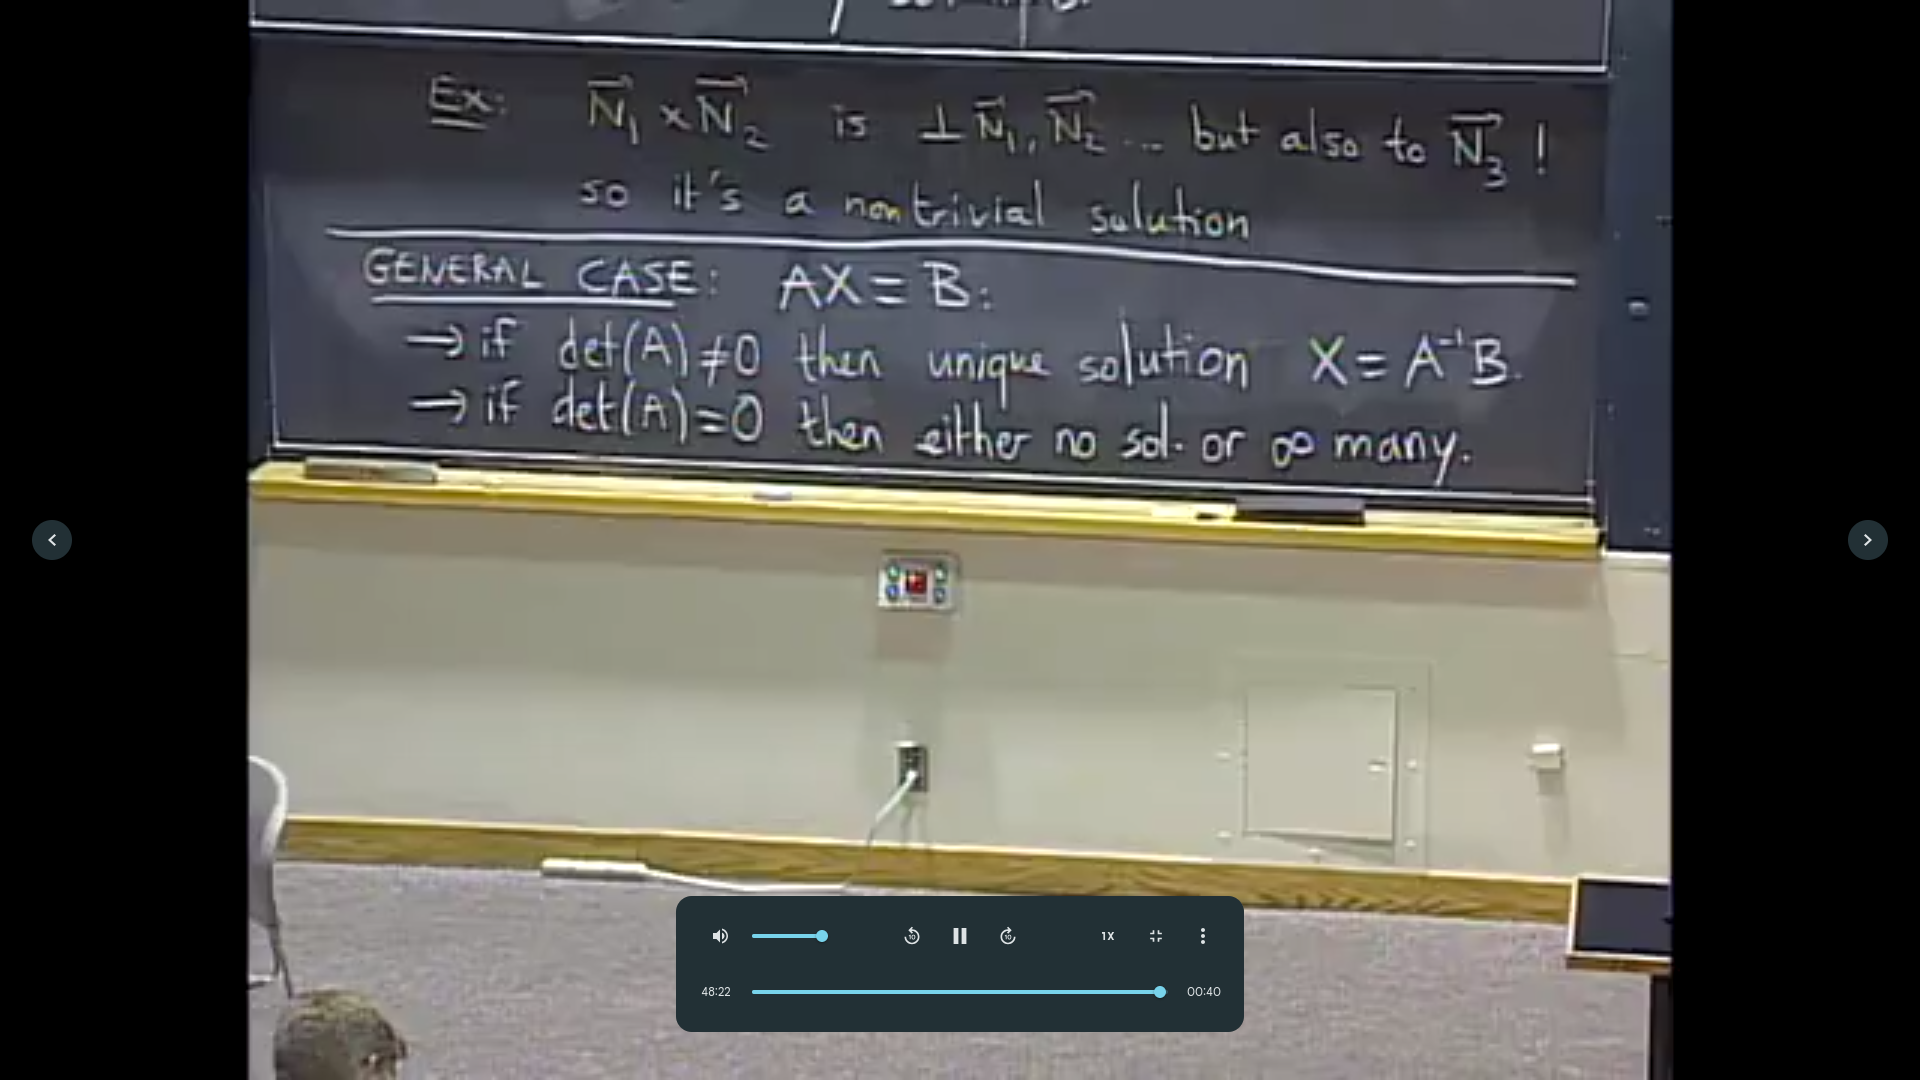 Ex: N⃗₁ × N⃗₂ is ⊥ N⃗₁, N⃗₂ ... but also to N⃗₃ !
so it's a nontrivial solution
GENERAL CASE: AX = B:
→ if det(A) ≠ 0 then unique solution X = A⁻¹B.
→ if det(A) = 0 then either no sol. or ∞ many.
1X
48:22 00:40